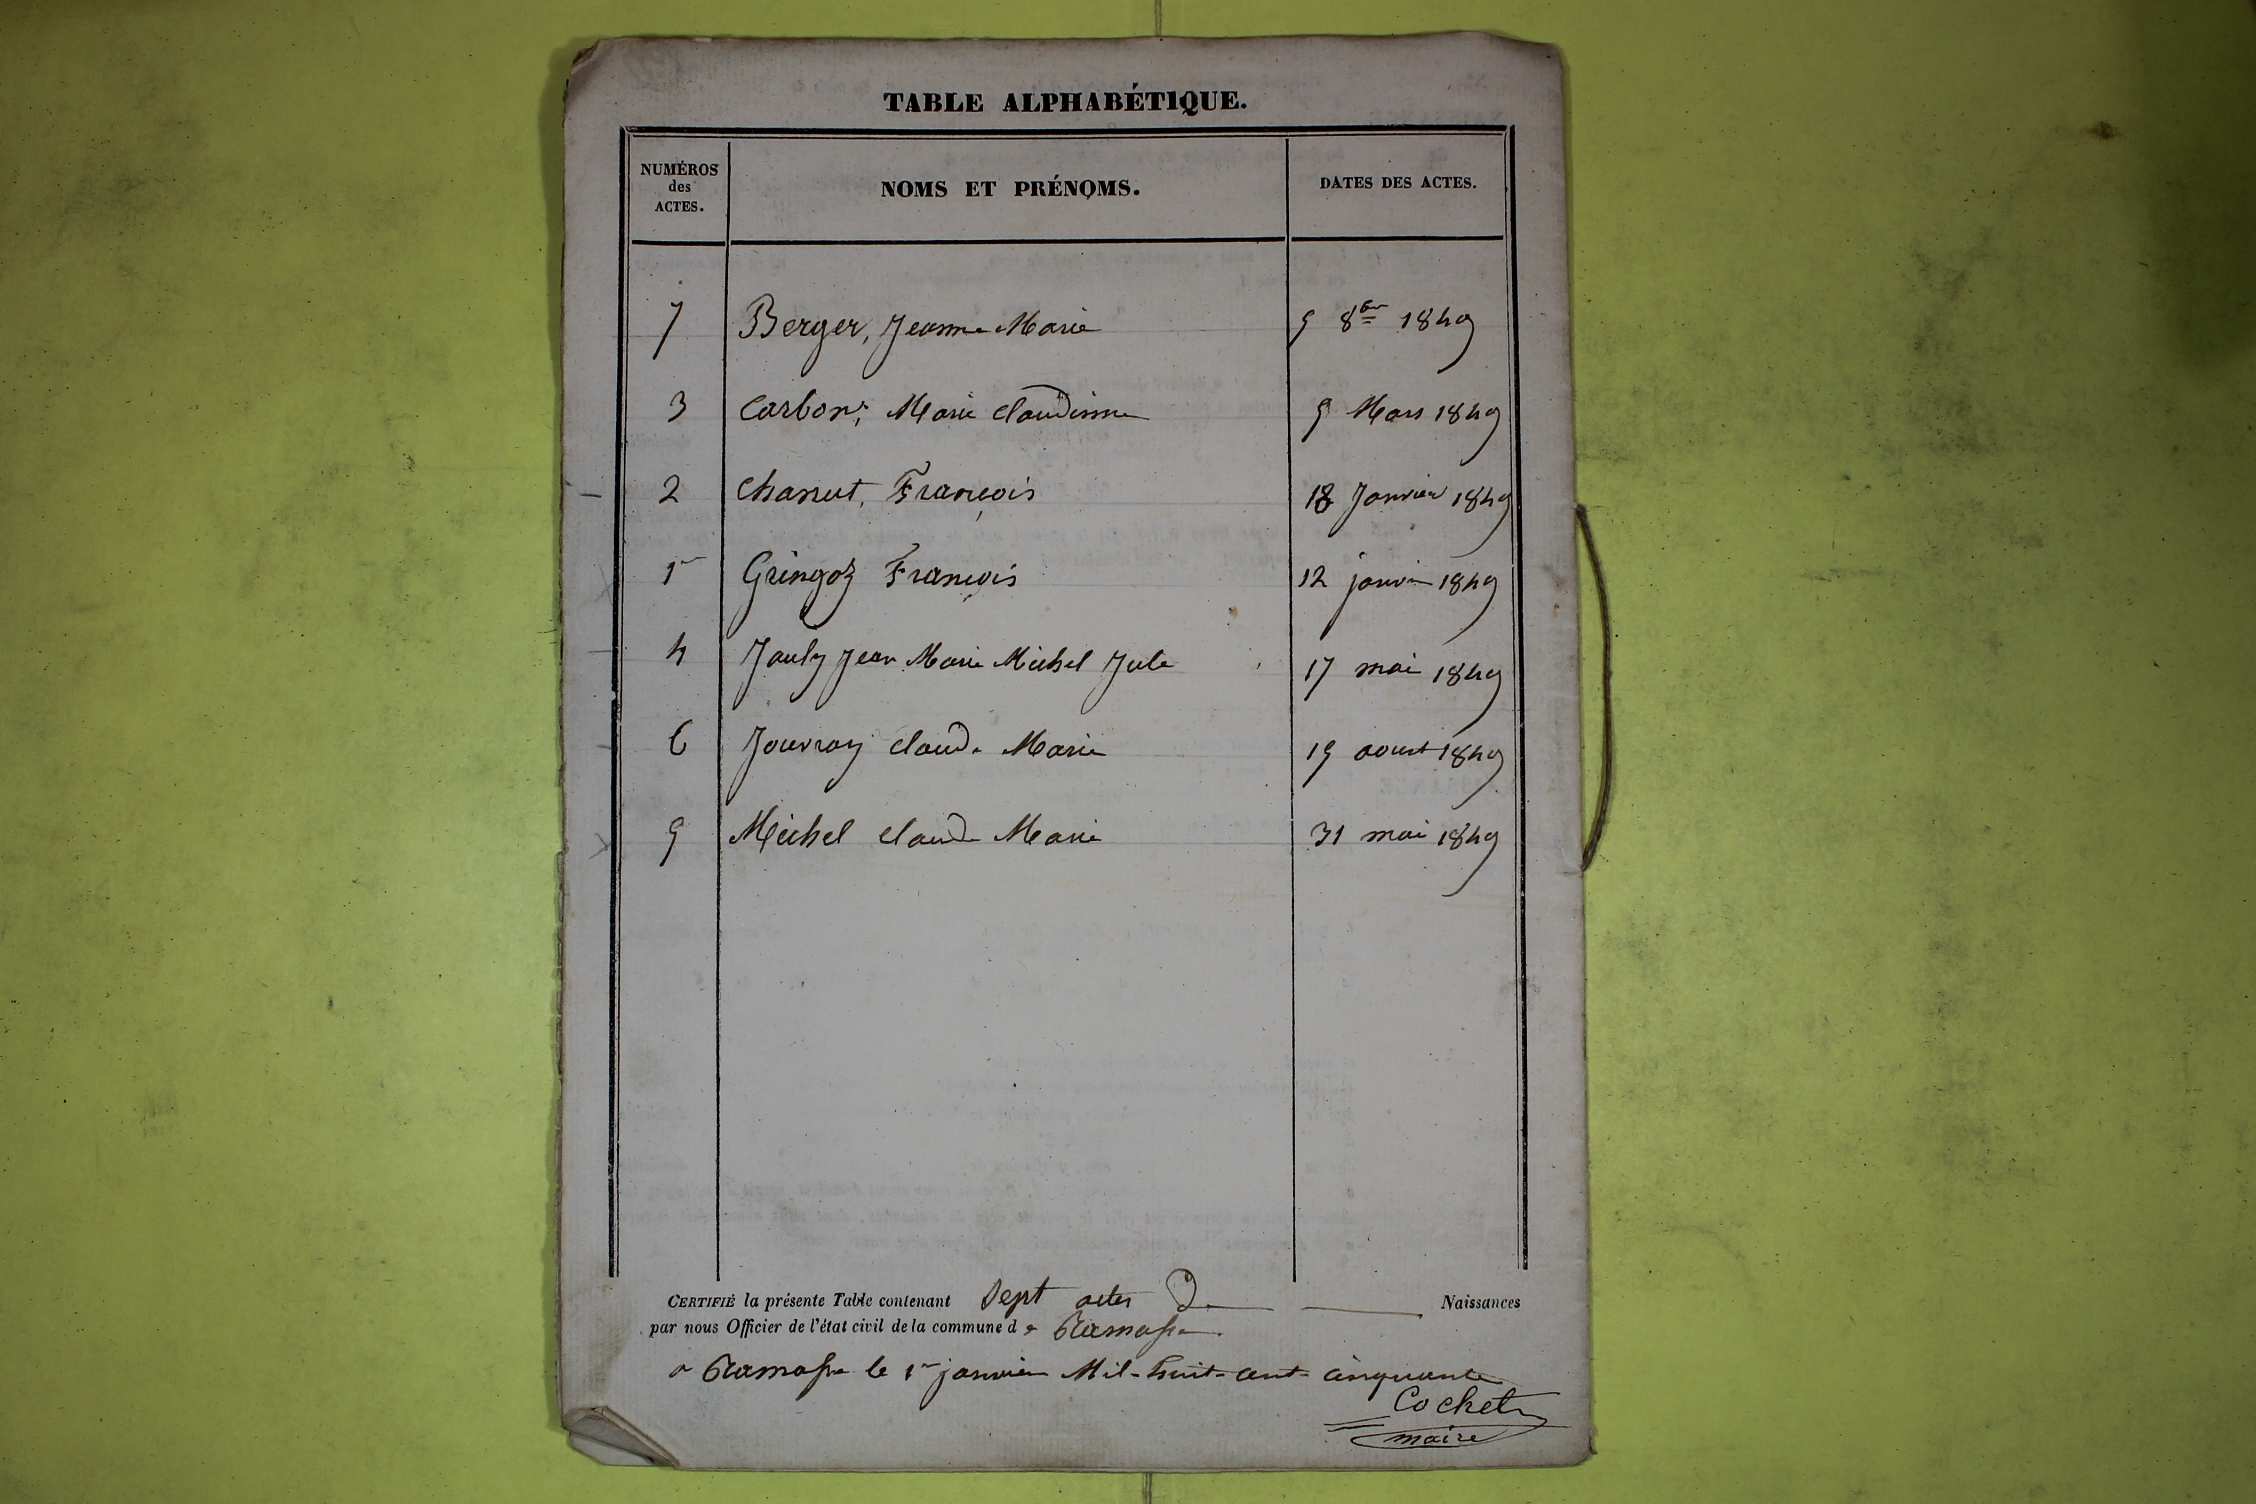 TABLE ALPHABÉTIQUE.
NUMÉROS des ACTES. NOMS ET PRÉNOMS. DATES DES ACTES.
7 Berger, Jeanne Marie 9 8bre 1849
3 Carbon, Marie Claudinne 9 Mars 1849
2 Chanut, François 18 Janvier 1849
1er Gringoz François 12 janvier 1849
4 Jauly Jean Marie Michel Jule 17 mai 1849
6 Jouvray Claude Marie 19 aoust 1849
9 Michel Claude Marie 31 mai 1849
CERTIFIÉ la présente Table contenant Sept actes De Naissances
par nous Officier de l'état civil de la commune de Ramasse
a Ramasse le 1er janvier Mil-huit-cent-cinquante
Cochet
maire